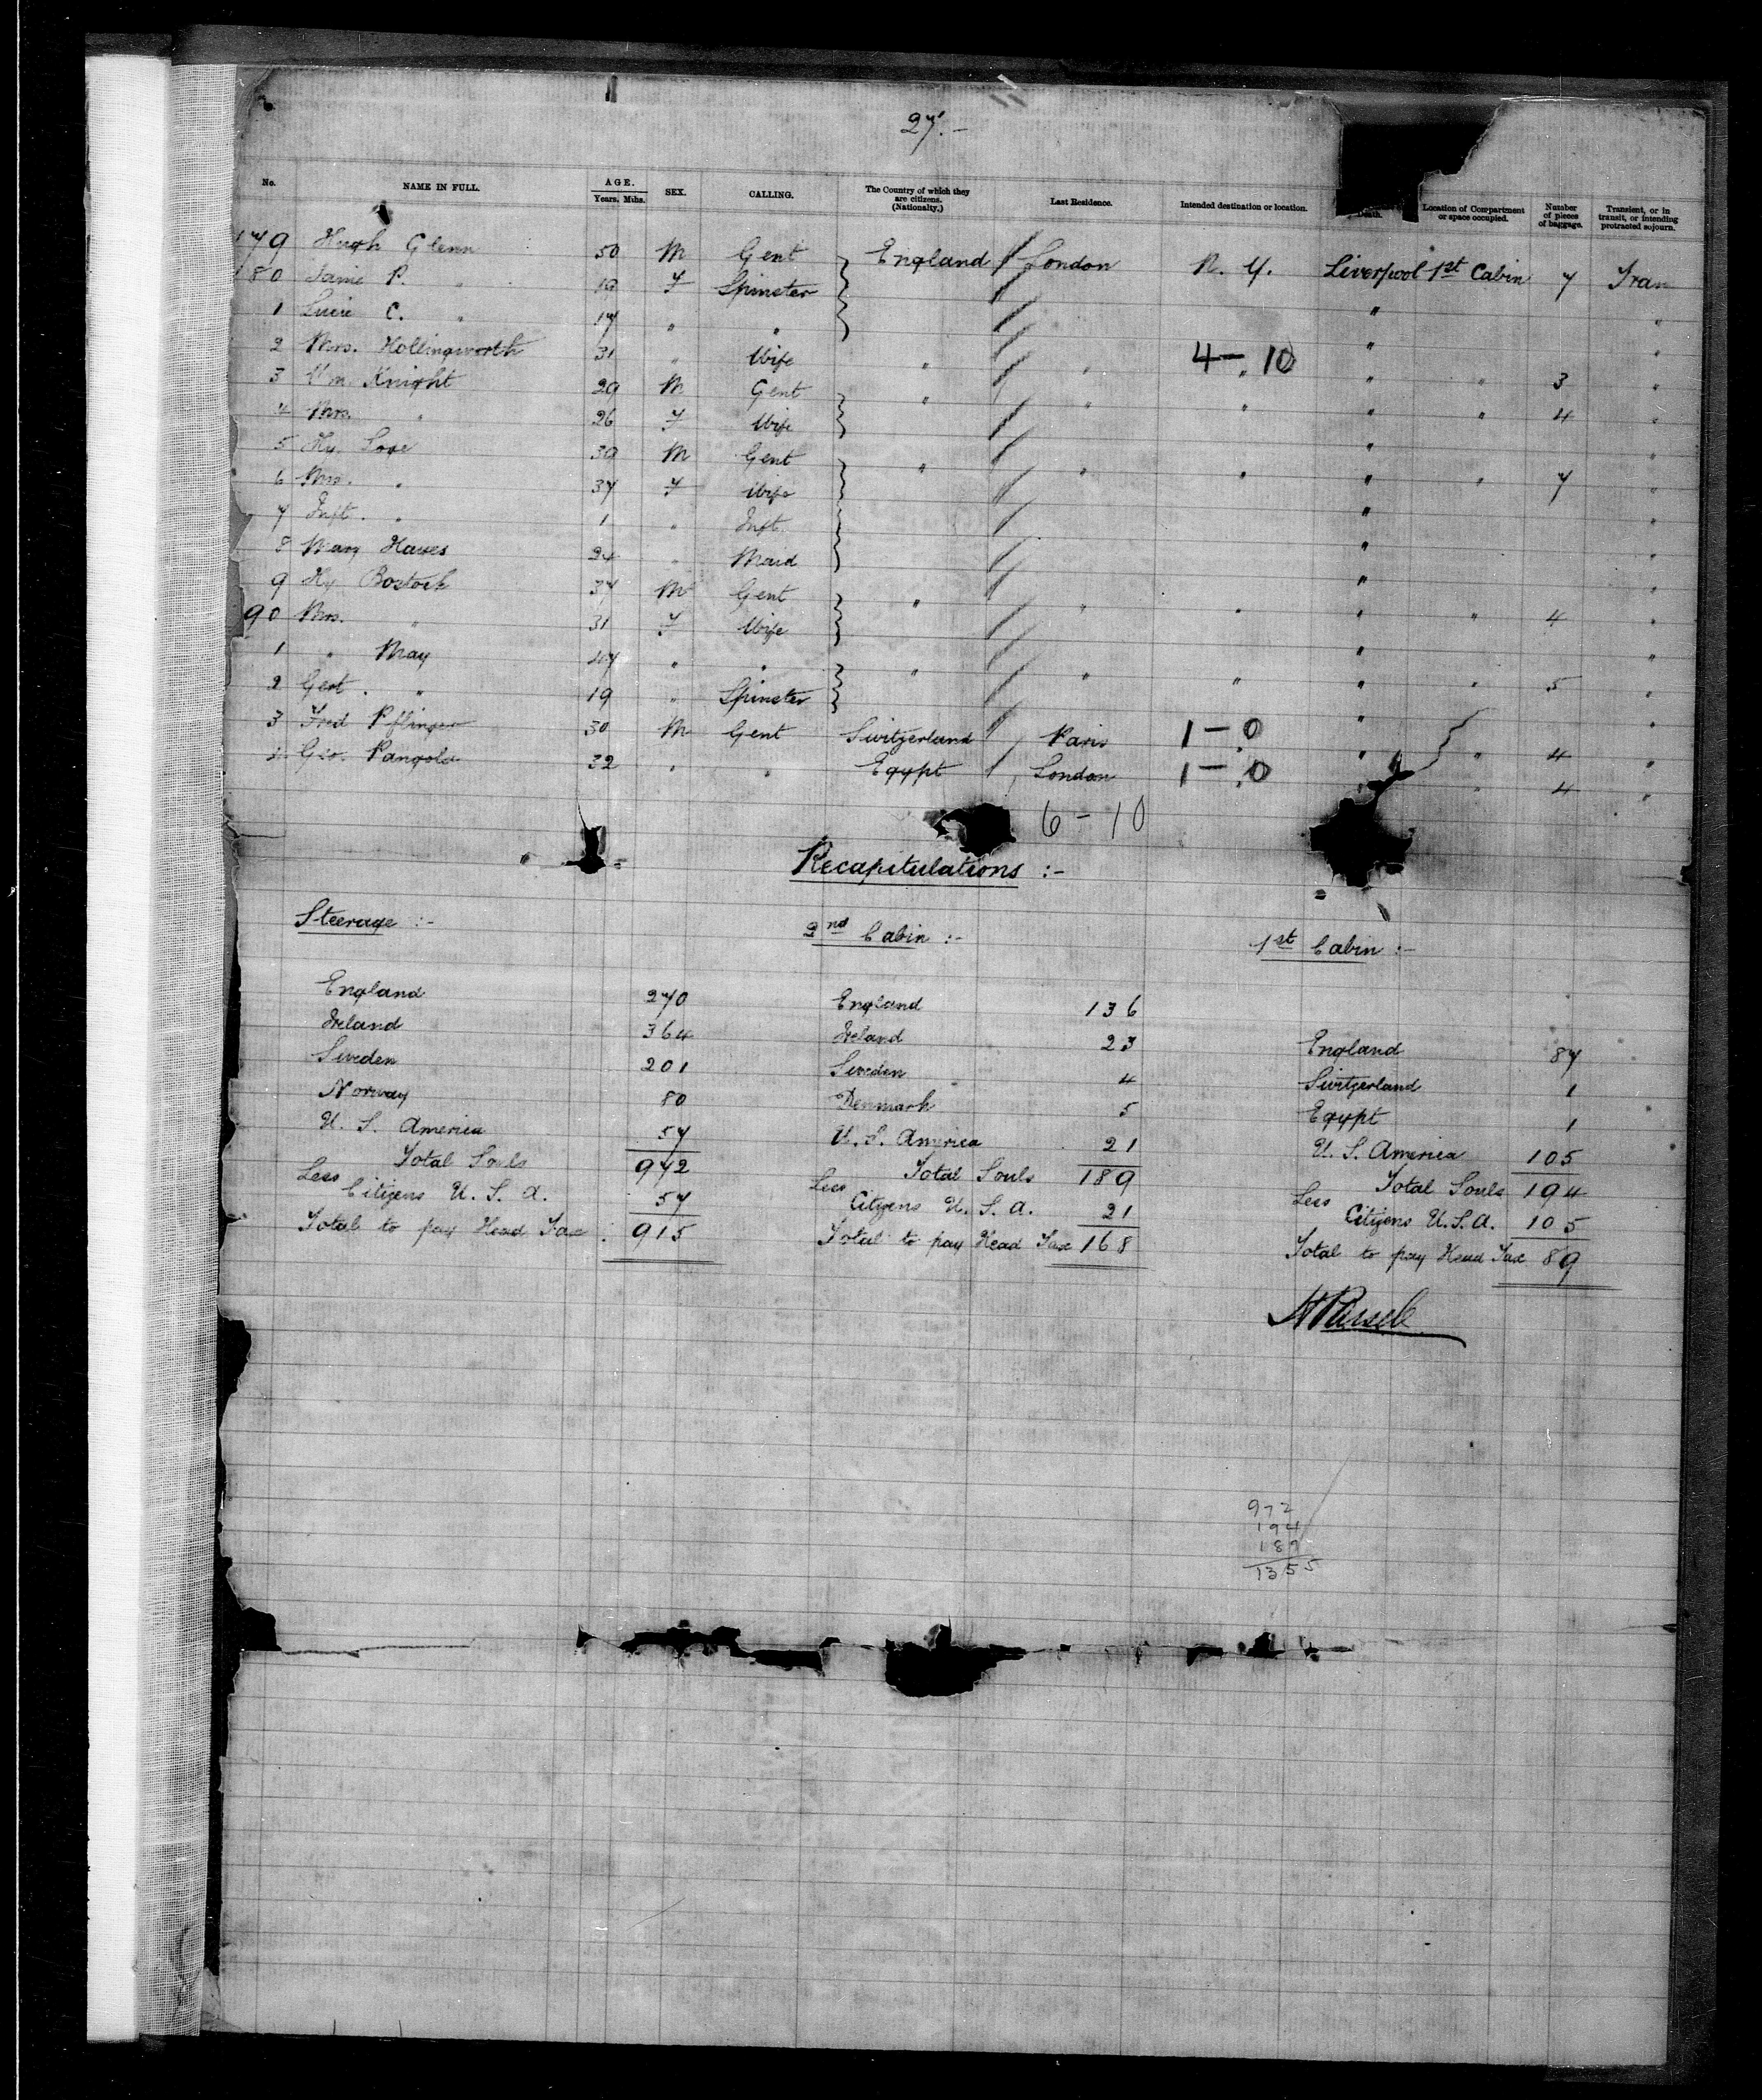 27.-
No. NAME IN FULL. AGE. Years. Mths. SEX. CALLING. The Country of which they are citizens. (Nationality.) Last Residence. Intended destination or location. Location of Compartment or space occupied. Number of pieces of baggage. Transient, or in transit, or intending protracted sojourn.
179 Hugh Glenn 50 M Gent England London N. Y. Liverpool 1st Cabin 7 Tran
180 Janie P. " 19 F Spinster " "
1 C. " 17 " " " "
2 Mrs. Hollingworth 31 " Wife " " 4 - 10 " " " 3 "
3 Wm. Knight 29 M Gent " " " " " 4 "
4 Mrs. " 26 F Wife " "
5 Hy. 39 M Gent " " " " " 7 "
6 Mrs. " 37 F Wife " "
7 Inft. " 1 " Inft. " "
8 Mary Hawes 24 " Maid " "
9 Hy. Bostock 34 M Gent " " " " " 4 "
90 Mrs. " 31 F Wife " "
1 " May 47 " " " " " " " 5 "
2 Gert. " 19 " Spinster " "
3 Fred Pflinger 30 M Gent Switzerland Paris 1 - 0 " " " 4 "
4 Geo. Pangolo 32 " " Egypt London 1 - 0 " " " 4 "
6 - 10
Recapitulations :-
Steerage :- 2nd Cabin :- 1st Cabin :-
England 270 England 136
Ireland 364 Ireland 23 England 87
Sweden 201 Sweden 4 Switzerland 1
Norway 80 Denmark 5 Egypt 1
U. S. America 57 U. S. America 21 U. S. America 105
Total Souls 972 Total Souls 189 Total Souls 194
Less Citizens U. S. A. 57 Less Citizens U. S. A. 21 Less Citizens U. S. A. 105
Total to pay Head Tax 915 Total to pay Head Tax 168 Total to pay Head Tax 89
972
194
189
1355